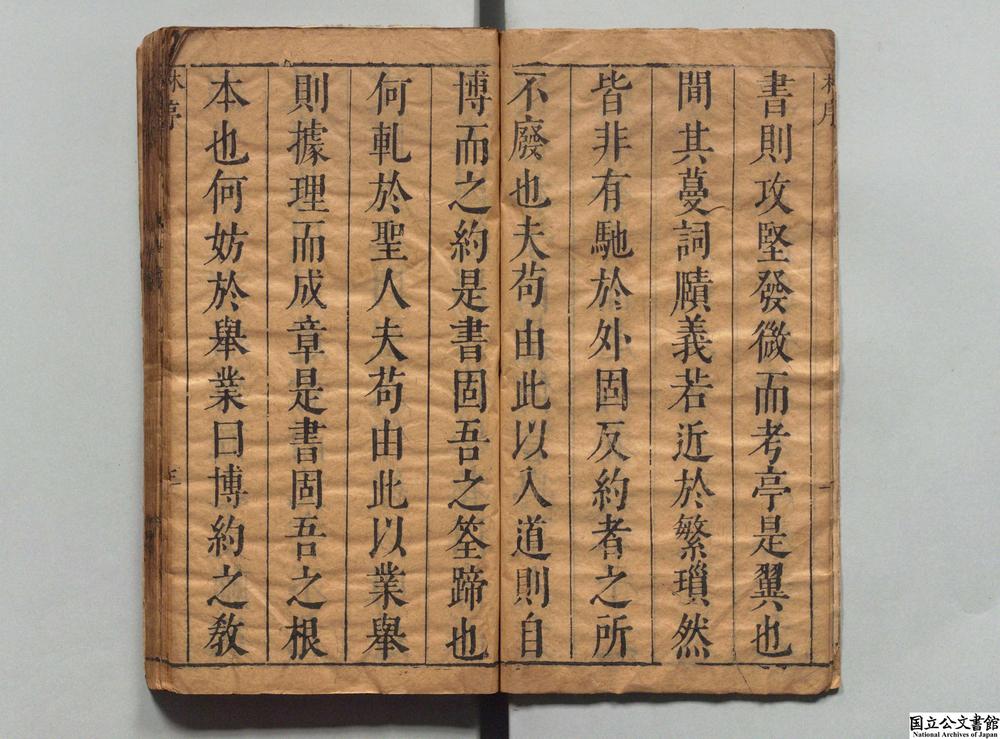 書則攻堅發微而考亭是翼也
間其蔓詞賾義若近於繁瑣然
皆非有馳於外固反約者之所
不廢也夫苟由此以入道則自
博而之約是書固吾之筌蹄也
何軋於聖人夫苟由此以業舉
則據理而成章是書固吾之根
本也何妨於舉業曰博約之教
国立公文書館
National Archives of Japan